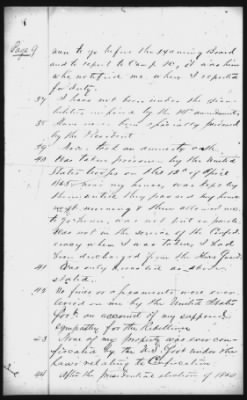 Page 9
was to go before the Examing Board
and to report to Camp &c, it was him
who notified me when I reported
for duty.
37 I have not been under the disa-
bilities imposed by the 14th amendment,
38 Have never been specially pardoned
by the President
39 Never took an amnesty oath.
40 Was taken prisoner by the United
States troops on the 12th of April
1865 near my house, was kept by
them until they passed my home
next morning & then allowed me
to go home, was not put on parole
Was not in the service of the Confed-
eracy when I was taken, I had
been discharged from the Home Guard.
41 Was only arrested as above
stated.
42 No fines or assessments were ever
levied on me by the United States
Govt. on account of my supposed
sympathy for the Rebellion
43 None of my property was ever con-
fiscated by the U.S. Govt under the
Laws relating to Confiscation
44 After the presidential election of 1860